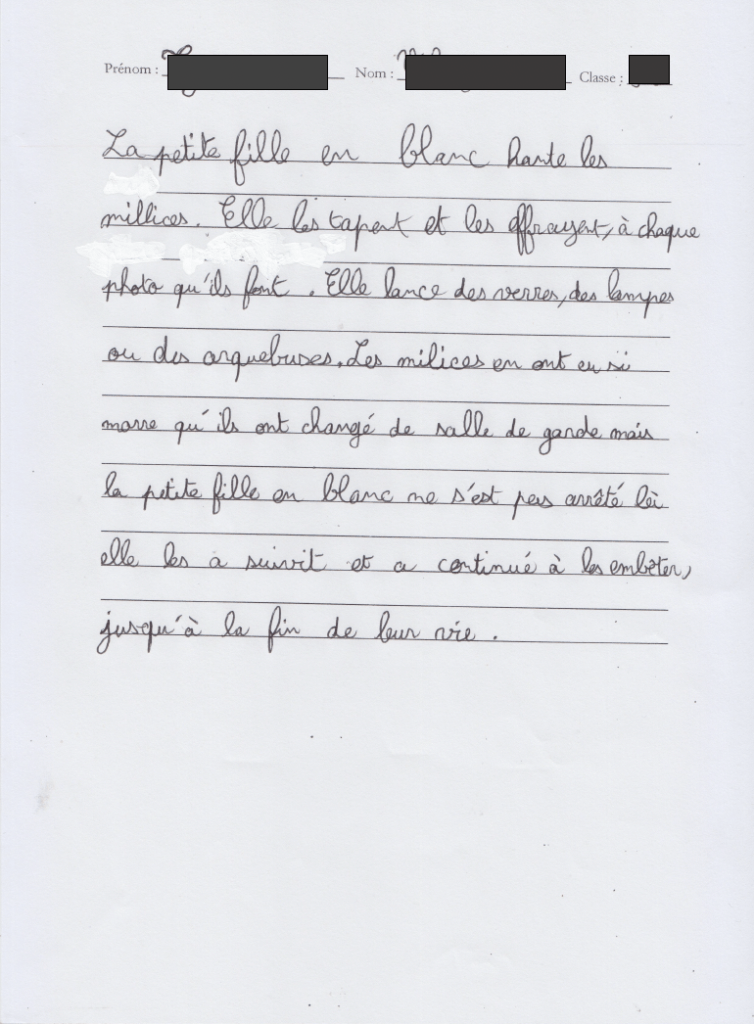 Prénom : Nom : Classe :
La petite fille en blanc hante les
millices. Elle les tapent et les effrayent, à chaque
photo qu'ils font . Elle lance des verres, des lampes
ou des arquebuses. Les milices en ont eu si
marre qu'ils ont changé de salle de garde mais
la petite fille en blanc ne s'est pas arrêté là
elle les a suivit et a continué à les embêter,
jusqu'à la fin de leur vie .